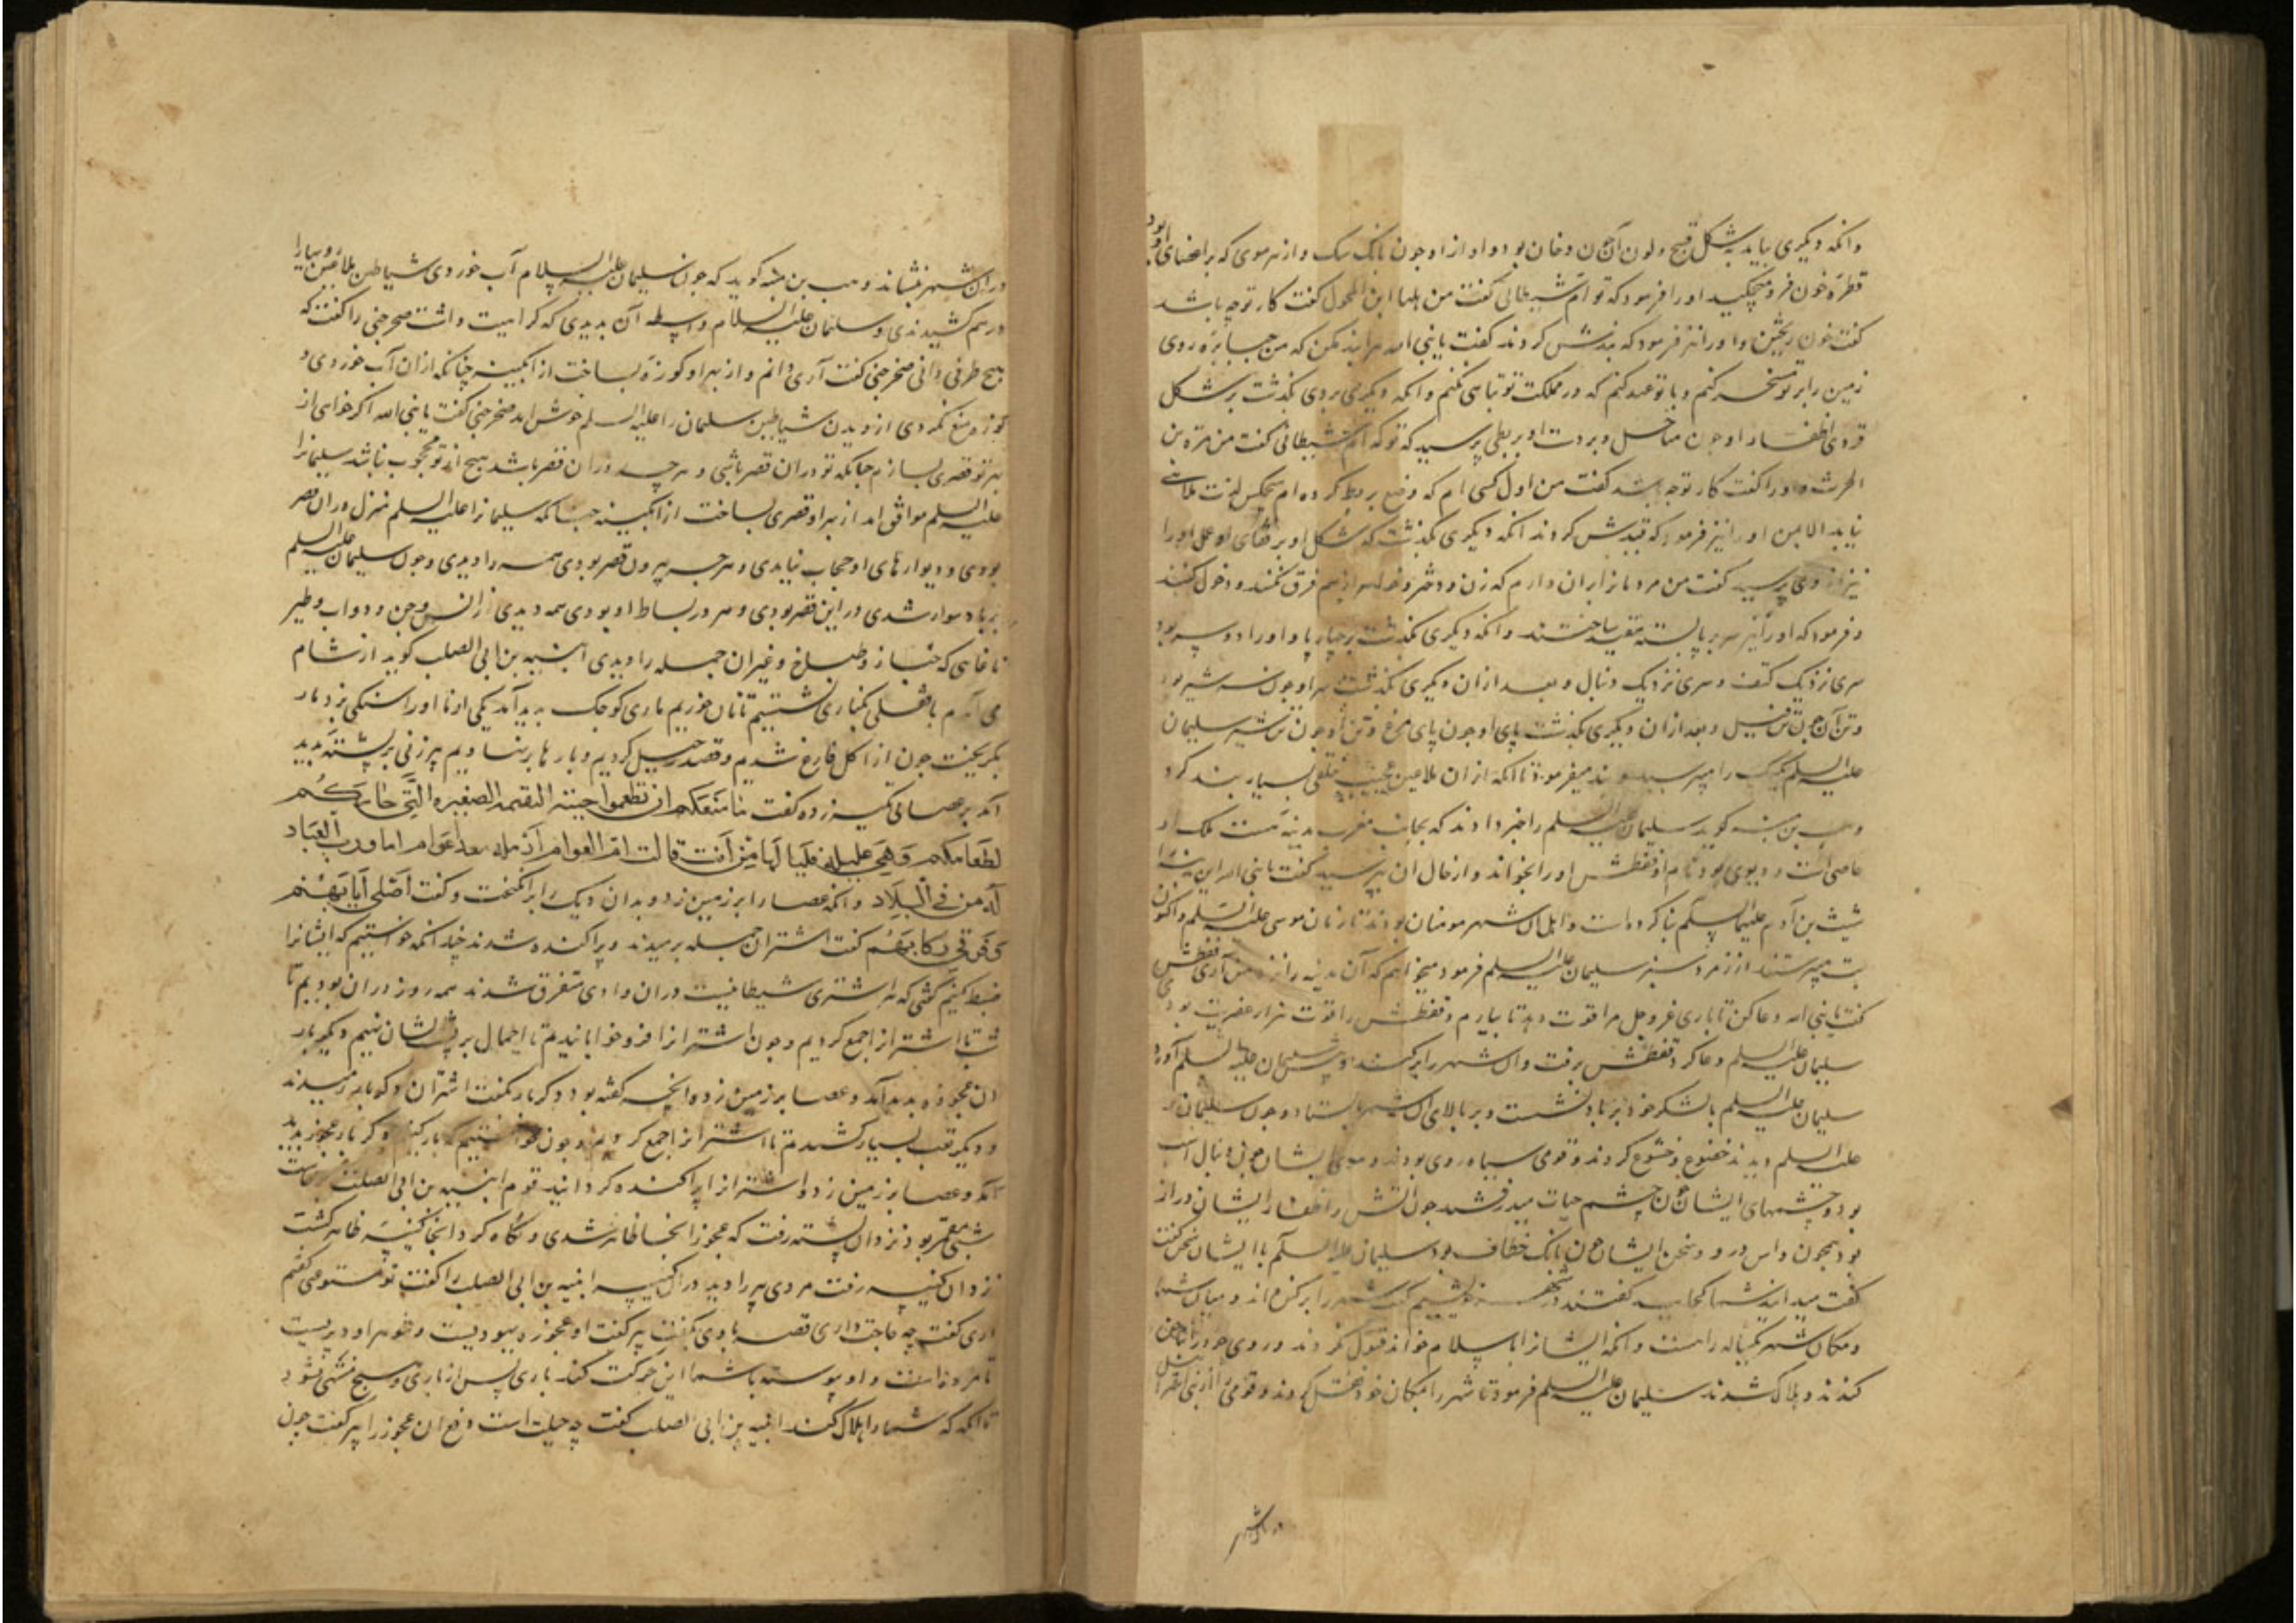 وانکه دیکری بیامد بشکل قبیح و لون آن چون دخان بود و اواز او چون بانک سک و از هر موی که بر اعضای او بود
قطره خون فرو میچکید او را فرمود که تو کدام شیطانی کفت من ابن المحول کفت کار تو چه باشد
کفت خون ریختن و او را نیز فرمود که بندش کردند کفت یا نبی الله مرا بند مکن که من جبابره روی
زمین را بر تو مسخر کنم و با تو عهد کنم که در مملکت تو تباهی نکنم وانکه دیکری بروی بکذشت بر شکل
قردی اظفار او چون مناجل و بر دست او بربطی پرسید که تو کدام شیطانی کفت من مرة بن
الحرث و او را کفت کار تو چه باشد کفت من اول کسی ام که وضع بربط کرده ام هیچکس لذت ملاهی
نیابد الا بمن او را نیز فرمود که قیدش کردند انکه دیکری بکذشت که شکل او
نیز از وی پرسید کفت من مردمانرا بران دارم که زن و دختر و خواهر از هم فرق نکنند و دخول کنند
و فرمود که او را نیز سر بر پا بسته مقید ساختند وانکه دیکری بکذشت بر چهار پا و او را دو سر بود
سری نزدیک کتف و سری نزدیک دنبال و بعد ازان دیکری بکذشت سر او چون سر شیر بود
و تن آن چون تن فیل و بعد ازان دیکری بکذشت پای او چون پای مرغ و تن او چون تن شیر سلیمان
علیه السلم یک یک را میپرسید و بند میفرمود تا انکه ازان ملاعین عجیب خلقی بسیار بند کرد
وهب بن منبه کوید سلیمان علیه السلم را خبر دادند که بجانب مغرب مدینه هست ملک او
عاصی است و دیوی بود نام او قفطش او را بخواند و از حال ان بپرسید کفت یا نبی الله این بنا
شیث بن آدم علیهما السلم بنا کرده است و اهل ان شهر مومنان بودند تا زمان موسی علیه السلم و اکنون
بت میپرستند از زمرد سبز سلیمان علیه السلم فرمود میخواهم که آن مدینه را نزد من آری قفطش
کفت یا نبی الله دعا کن تا باری عز و جل مرا قوت دهد تا بیارم و قفطش را قوت هزار عفریت بود
سلیمان علیه السلم دعا کرد قفطش برفت و ان شهر را بر کند و پیش سلیمان علیه السلم آورد
سلیمان علیه السلم با لشکر خود بر باد نشست و بر بالای ان شهر بایستاد و چون سلیمان را
علیه السلم دیدند خضوع و خشوع کردند و قومی سیاه روی بودند و موی ایشان چون دنبال اسب
بود و چشمهای ایشان چون چشم حیات میدرخشید چون آتش و اظفار ایشان دراز
بود همچون داس درو و سخن ایشان چون بانک خطاف بود سلیمان علیه السلم با ایشان سخن کفت
کفت میدانید شما کجایید کفتند در شهر خویشیم کفت شهر را بر کنده اند و میان شما
و مکان شهر یکساله راهست وانکه ایشانرا باسلام خواند قبول نکردند
کندند و هلاک شدند سلیمان علیه السلم فرمود تا شهر را بمکان خود نقل کردند و قومی را از بنی اسرائیل
دران شهر
دران شهر بنشاند وهب بن منبه کوید که چون سلیمان علیه السلام آب خوردی شیاطین ملاعین رویها را
درهم کشیدندی و سلیمان علیه السلام واسطه آن بدیدی که کراهیت داشت صخر جنی را کفت که
هیچ ظرفی دانی صخر جنی کفت آری دانم و از بهر او کوزه بساخت از ابکینه چنانکه ازان آب خوردی و
کوزه منع نکردی از دیدن شیاطین سلیمان را علیه السلم خوش امد صخر جنی کفت یا نبی الله اکر خواهی از
بهر تو قصری بسازم چنانکه تو دران قصر باشی و هر چه دران قصر باشد هیچ از تو محجوب نباشد سلیمانرا
علیه السلم موافق امد از بهر او قصری بساخت از ابکینه چنانکه سلیمانرا علیه السلم منزل دران قصر
بودی و دیوارهای او حجاب نیامدی و هر چه بیرون قصر بودی همه را دیدی و چون سلیمان علیه السلم
بر باد سوار شدی در این قصر بودی و هر در بساط او بودی همه دیدی از انس و جن و دواب و طیر
تا غایتی که خباز و طباخ و غیران جمله را دیدی امیه بن ابی الصلت کوید از شام
می آمدم با قفلی بکناری نشستیم تا نان خوریم ماری کوچک پدید آمد یکی از ما او را سنکی بزد مار
بکریخت چون از اکل فارغ شدیم و قصد رحیل کردیم و بارها بر نهادیم پیر زنی بر پشته پدید
آمد بر عصائی تکیه زده کفت ما منعکم ان تطعموا جنینه الیتیمه الصغیره التی جاءتکم
لطعامکم و هی علیله فلنا لها من انت قالت ام العوام اما ورب العباد
لافترقن فی البلاد وانکه عصا را بر زمین زد و بدان ریک را برانکیخت و کفت
کفت اشتران جمله برمیدند و پراکنده شدند چنانکه خواستیم که ایشانرا
ضبط کنیم کوئی که هر اشتری شیطانیست دران وادی متفرق شدند همه روز دران بودیم تا
شب تا اشترانرا جمع کردیم و چون اشترانرا فرو خوابانیدیم تا احمال بر پشتشان نهیم دیکر بار
ان عجوزه پدید آمد و عصا بر زمین زد و انچه کفته بود دکر بار بکفت اشتران دکر بار برمیدند
و دیکر تعب بسیار کشیدیم تا اشترانرا جمع کردیم و چون خواستیم که بار کنیم دکر بار عجوز پدید
آمد و عصا بر زمین زد و اشترانرا پراکنده کردانید قوم امیه بن ابی الصلت
نزد ان پشته رفت که عجوز انجا ظاهر شدی و نکاه کرد انجا کنیسه ظاهر کشت
نزد ان کنیسه رفت مردی پیر را دید دران کنیسه امیه بن ابی الصلت را کفت تو
داری کفت چه حاجت داری قصه با وی بکفت پیر کفت او عجوزه یهودیست و شوهر او دیریست
تا مرده است و او پیوسته با شما این حرکت کند باری پس از باری و هیچ منتهی نشود
تا انکه که شما را هلاک کند امیه بن ابی الصلت کفت چه حیلت است دفع ان عجوز را پیر کفت چون